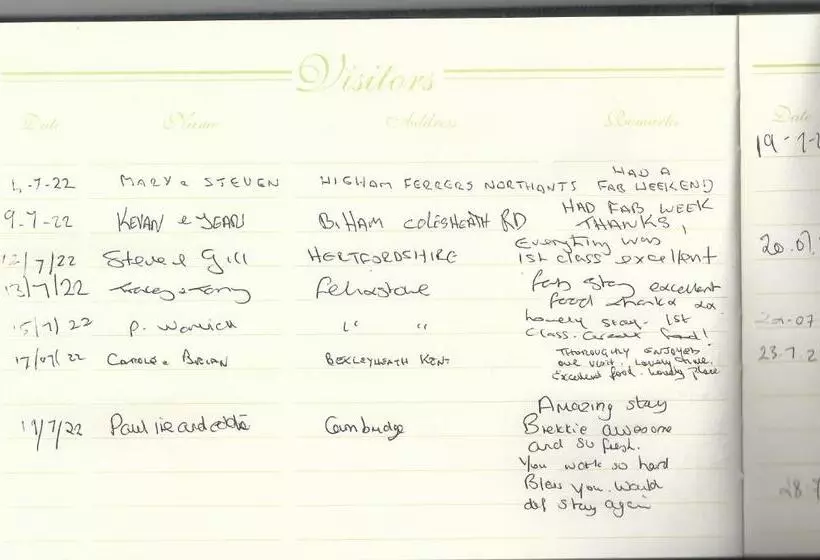 Visitors
Date Name Address Remarks
HAD A
1-7-22 MARY & STEVEN HIGHAM FERRERS NORTHANTS FAB WEEKEND
HAD FAB WEEK
9-7-22 KEVAN & JEAN COLESHEATH RD THANKS,
Everything was
12/7/22 Steve & Gill HERTFORDSHIRE 1st class excellent
fab stay excellent
13/7/22 Felixstowe food thanks xx
lovely stay. 1st
15/7/22 P. Warwick " " Class. Great food!
THOROUGHLY ENJOYED
17/07/22 CAROLE & BRIAN BEXLEYHEATH KENT our visit. Lovely
Excellent food. Lovely place
Amazing stay
Cambridge Brekkie awesome
and so fresh.
You work so hard
Bless you. Would
def stay again
Date
19-7-2
20.07.
23.7.2
28.7